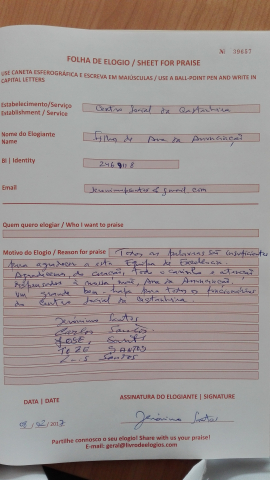 Nº 36657
FOLHA DE ELOGIO / SHEET FOR PRAISE
USE CANETA ESFEROGRÁFICA E ESCREVA EM MAIÚSCULAS / USE A BALL-POINT PEN AND WRITE IN
CAPITAL LETTERS
Estabelecimento/Serviço
Establishment / Service
Centro Social da Castanheira
Nome do Elogiante
Name
Filhos de Ana da Anunciação
BI | Identity
Email
Quem quero elogiar / Who I want to praise
Motivo do Elogio / Reason for praise
Todas as palavras são insuficientes
para agradecer a esta Equipa de Excelência.
Agradecemos, do coração, todo o carinho e atenção
à nossa mãe, Ana da Anunciação.
Um grande bem-haja para todos os funcionários
do Centro Social da Castanheira
Jerónimo Santos
Carlos Santos
José Santos
SANTOS
Luis Santos
DATA | DATE
ASSINATURA DO ELOGIANTE | SIGNATURE
2017
Jerónimo Santos
Partilhe connosco o seu elogio! Share with us your praise!
E-mail: geral@livrodeelogios.com